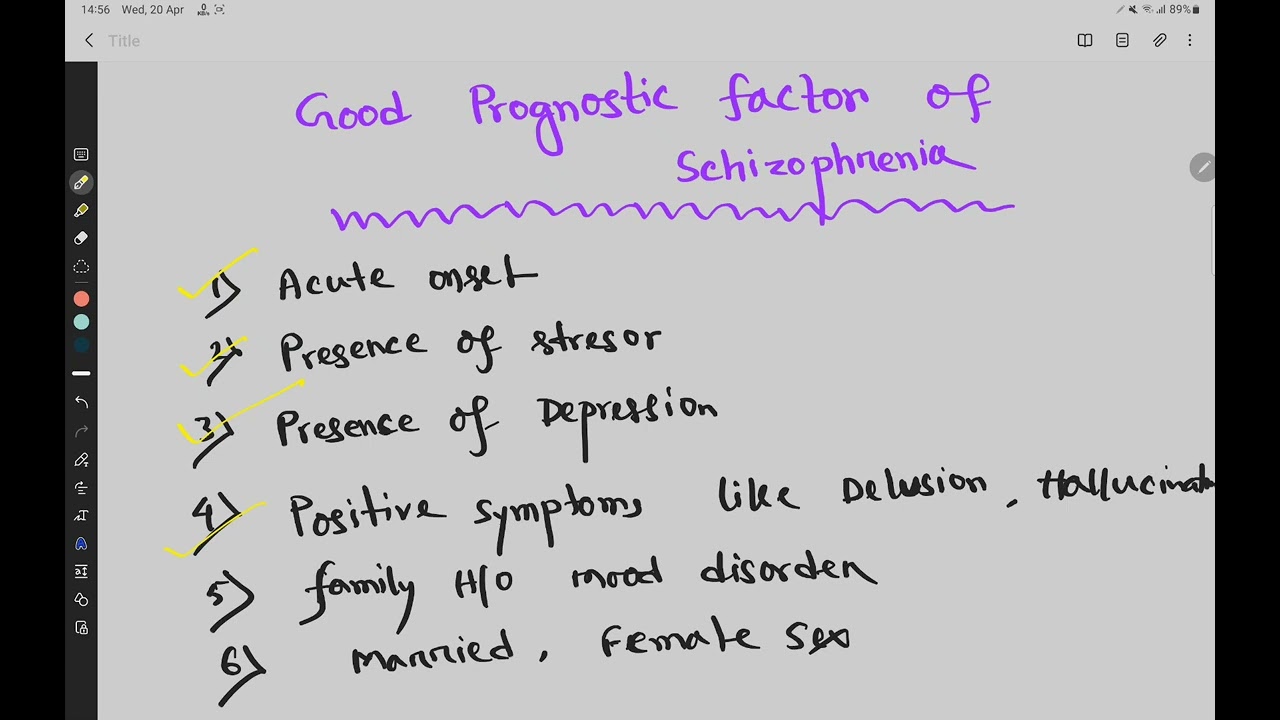 14:56 Wed, 20 Apr 0 KB/s 89%
Title
Good Prognostic factor of
Schizophrenia
1) Acute onset
2) Presence of stresor
3) Presence of Depression
4) Positive symptoms like Delusion, Hallucinat
5) family H/O mood disorder
6) Married, Female sex